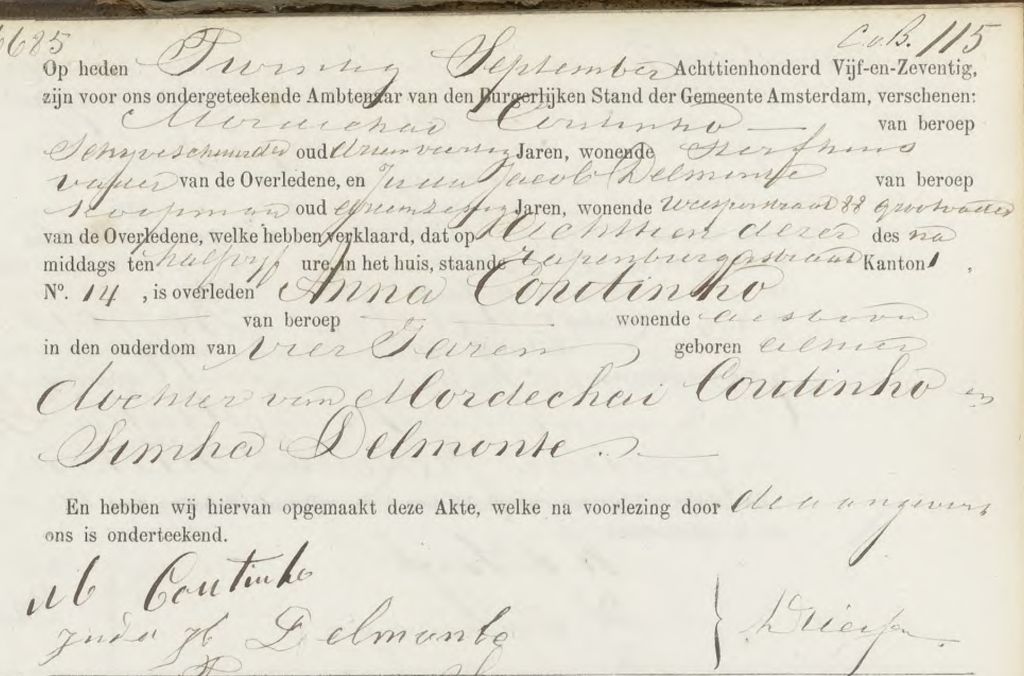 6685 C.v.B. 115
Op heden Twintig September Achttienhonderd Vijf-en-Zeventig,
zijn voor ons ondergeteekende Ambtenaar van den Burgerlijken Stand der Gemeente Amsterdam, verschenen:
Mordechai Coutinho van beroep
oud drieenveertig Jaren, wonende sterfhuis
vader van de Overledene, en Juda Jacob Delmonte van beroep
Koopman oud Jaren, wonende Weesperstraat 88 grootvader
van de Overledene, welke hebben verklaard, dat op Achttien dezer des na
middags ten half vijf ure, in het huis, staande Zapenburgerstraat Kanton 1,
N°. 14, is overleden Anna Coutinho
van beroep wonende aldaar
in den ouderdom van vier Jaren geboren alhier
dochter van Mordechai Coutinho en
Simha Delmonte.
En hebben wij hiervan opgemaakt deze Akte, welke na voorlezing door de aangevers
ons is onderteekend.
M Coutinho
Juda Jb Delmonte